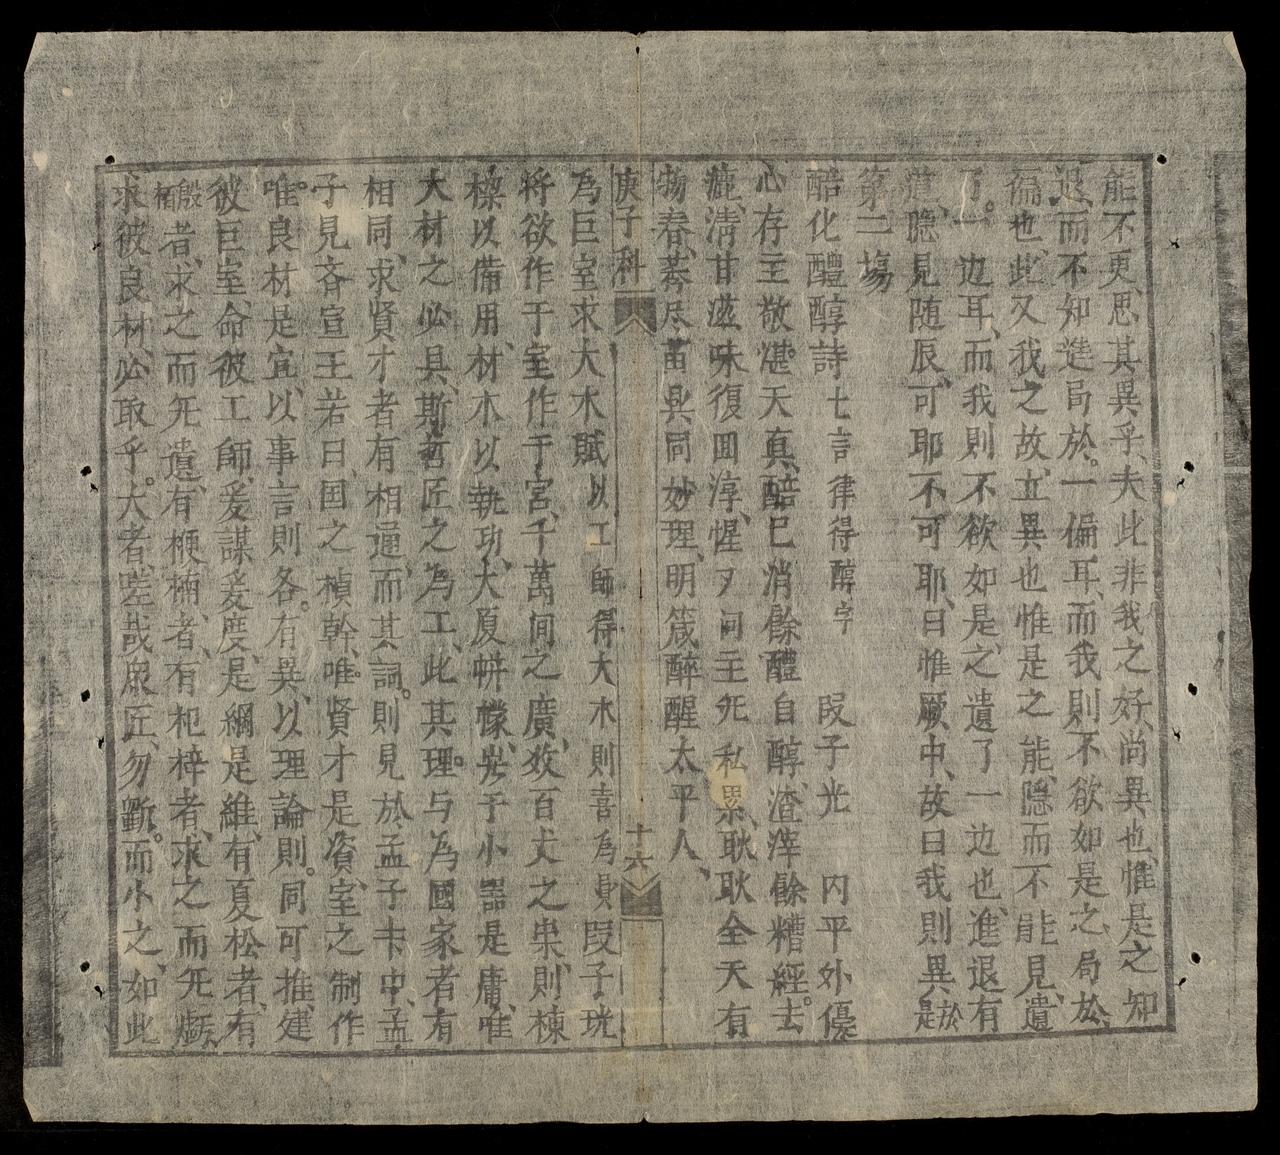 能不更思、其異乎、夫此非我之好、尚異也、惟是之知
退、而不知造局於。一偏耳、而我則不欲如是之、局於、
偏也、此又我之故、立異也惟是之能、隱而不能見、遺
了。一边耳、而我則不欲如是、之遺了一边也、進退有
道、隐見随辰、可耶不可耶、曰惟厥中、故曰我則異於是
第二塲
酷化醴醇詩七言律得醇字 段子光 内平外優
心存主敬湛天真、醅已消餘醴自醇、渣滓餘糟經。去
漉、淸甘滋味復囬淳、惺〻祠主旡私累、耿耿全天有
物春、莽尽菑具同妙理、明箴醉醒太平人、
庚子科
十六
為巨室求大木賦以工師得大木則喜為員段子珖
将欲作于室作于宮、千萬间之廣、效百丈之渠、則棟
樑以備用、材木以執功、大厦帡幪、豈于小器是庸、惟
大材之必具、斯哲匠之為工、此其理。与為國家者有
相同、求賢才者有相通、而其詞。則見於、孟子卡中、孟
子見斉宣王若曰、囯之楨幹、唯。賢才是資、室之制作
唯。良材是宜、以事言則各。有異、以理論則。同可推、建
彼巨室、命彼工師、爰謀爰度、是綱是維、有夏松者、有
殷栢者、求之而旡遺、有梗楠、者、有杞梓者、求之而旡虧、
求彼良材、必取乎。大者、嗟哉衆匠、勿斵。而小之、如此